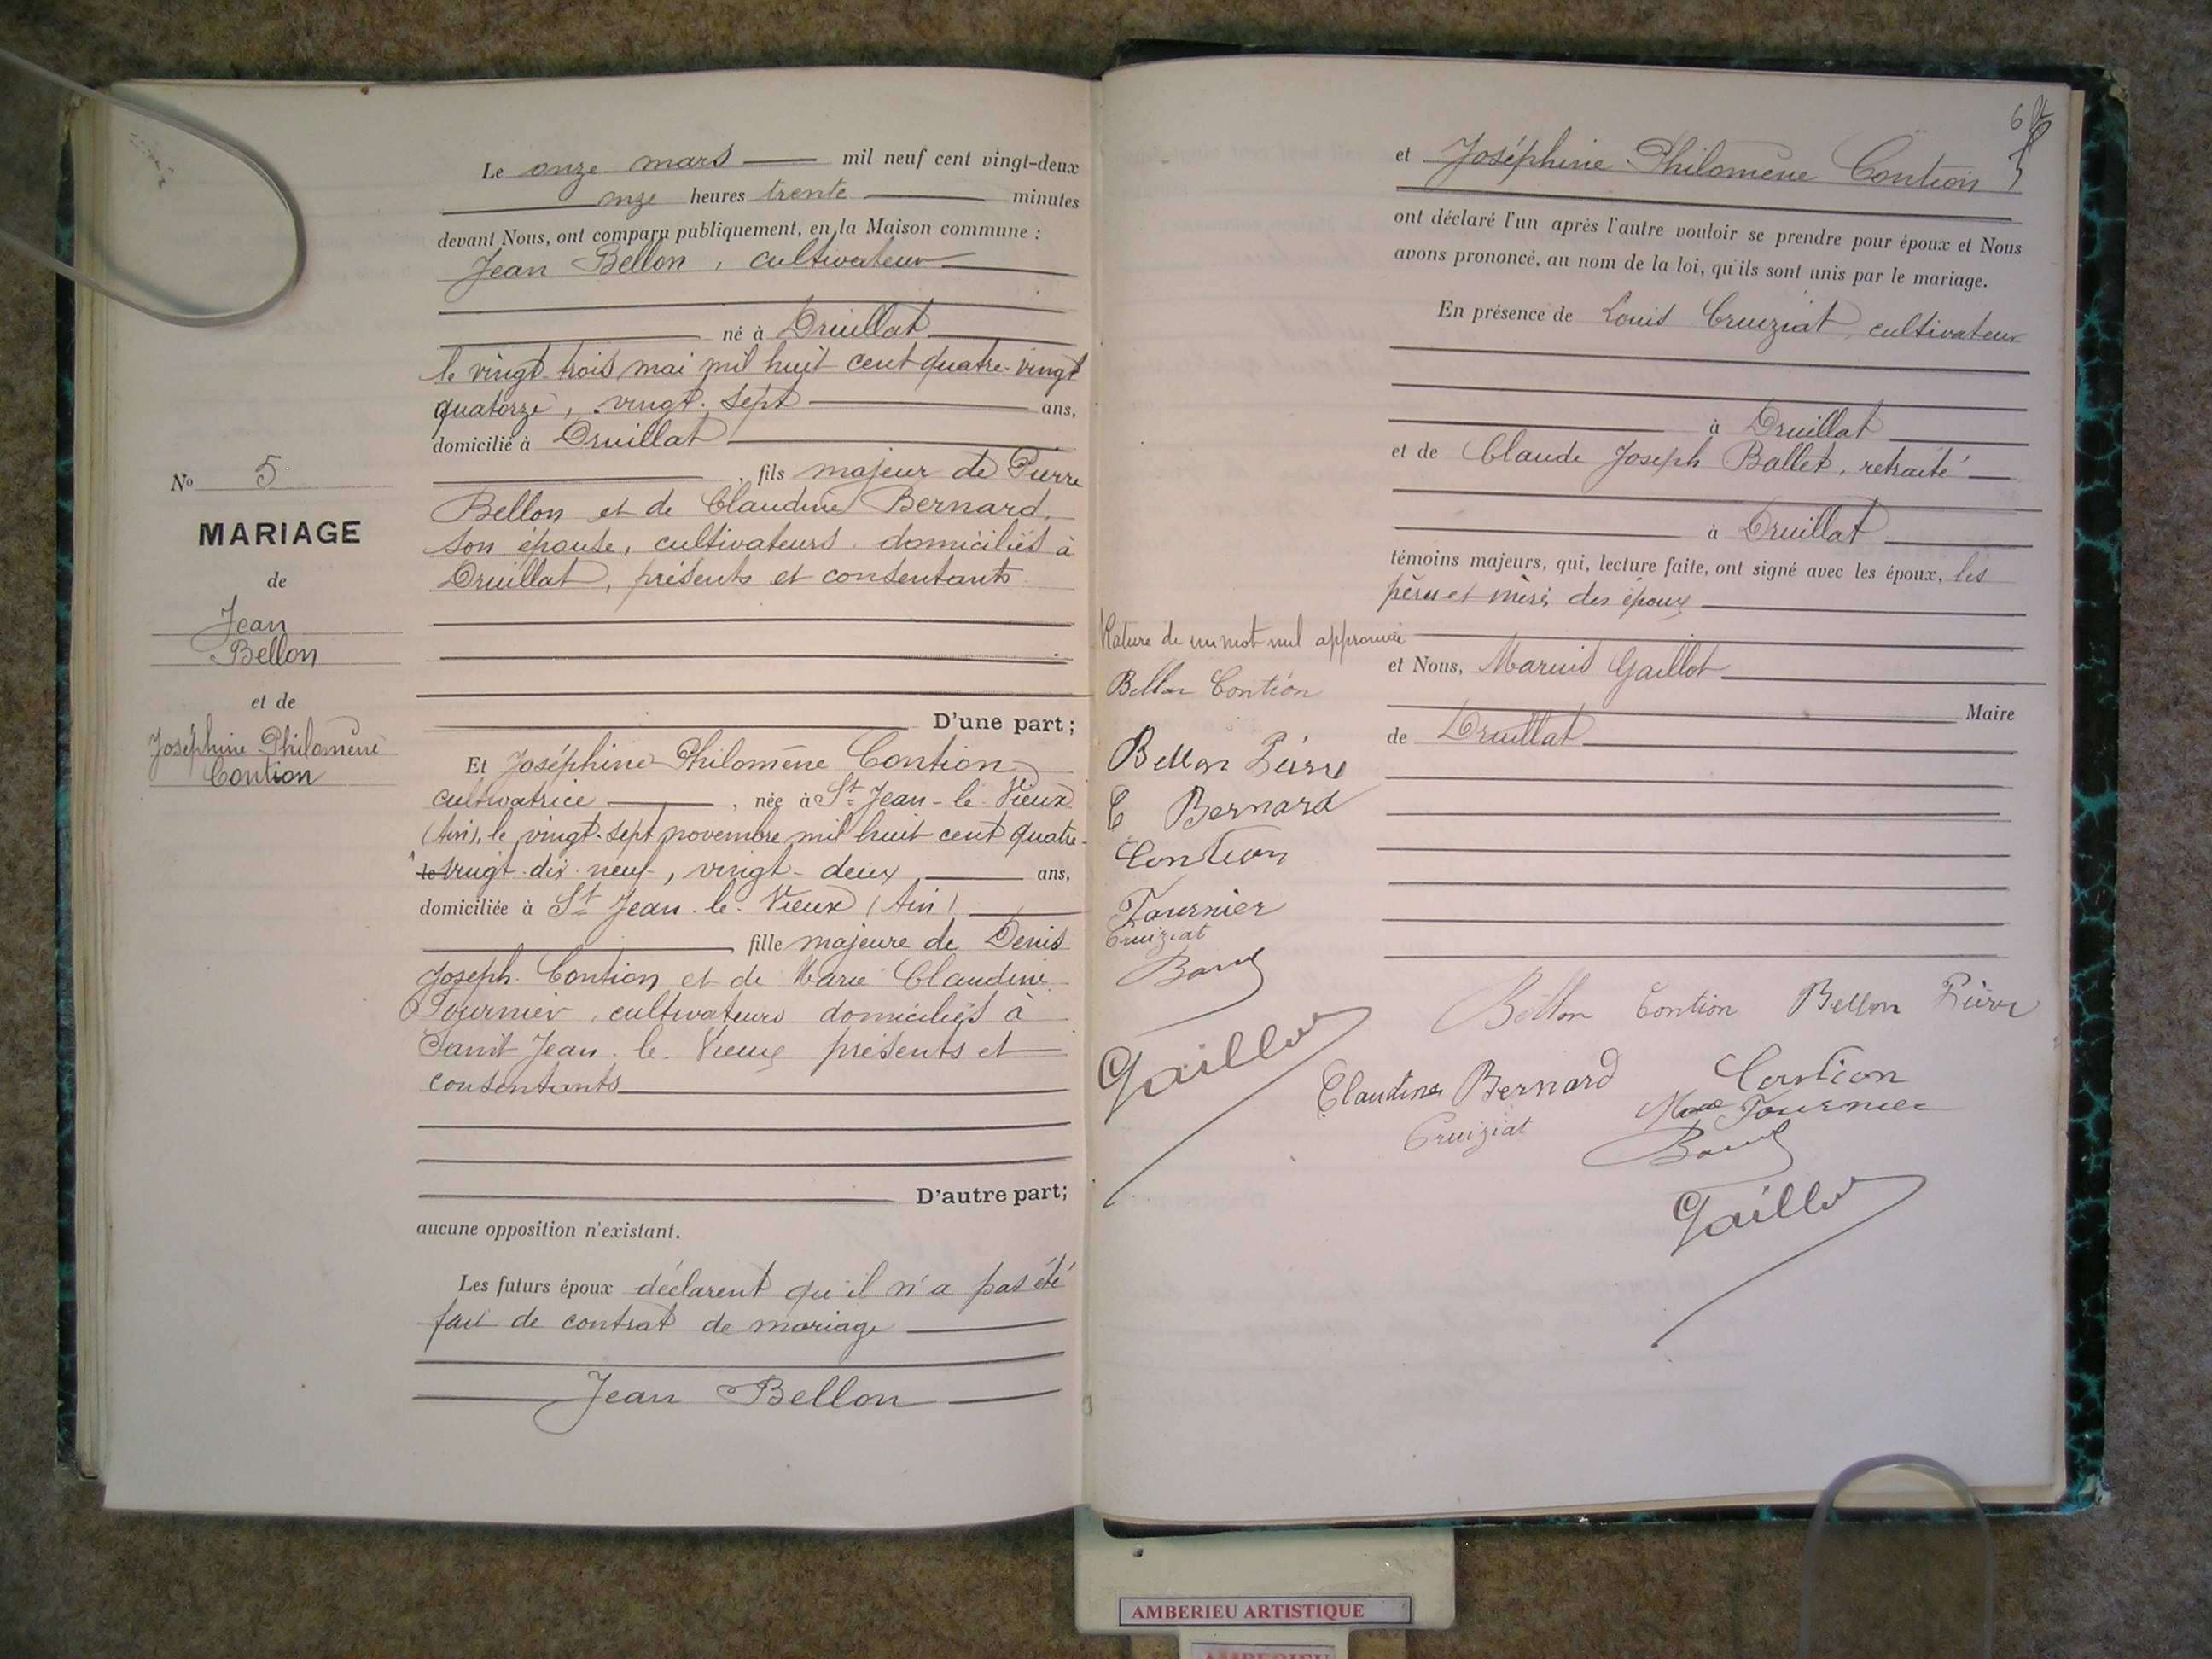 No 5
MARIAGE
de
Jean
Bellon
et de
Joséphine Philomène
Contion
Le onze mars mil neuf cent vingt-deux
onze heures trente minutes
devant Nous, ont comparu publiquement, en la Maison commune :
Jean Bellon, cultivateur
né à Druillat
le vingt-trois mai mil huit cent quatre-vingt
quatorze, vingt-sept ans,
domicilié à Druillat
, fils majeur de Pierre
Bellon et de Claudine Bernard,
son épouse, cultivateurs domiciliés à
Druillat, présents et consentants
D'une part ;
Et Joséphine Philomène Contion
cultivatrice , née à St Jean-le-Vieux
(Ain), le vingt-sept novembre mil huit cent quatre-
vingt-dix-neuf, vingt-deux ans,
domiciliée à St Jean-le-Vieux (Ain)
, fille majeure de Denis
Joseph Contion et de Marie Claudine
Tournier, cultivateurs domiciliés à
Saint Jean-le-Vieux présents et
consentants
D'autre part;
aucune opposition n'existant.
Les futurs époux déclarent qu'il n'a pas été
fait de contrat de mariage
Jean Bellon
et Joséphine Philomène Contion
ont déclaré l'un après l'autre vouloir se prendre pour époux et Nous
avons prononcé, au nom de la loi, qu'ils sont unis par le mariage.
En présence de Louis Cruiziat, cultivateur
à Druillat
et de Claude Joseph Ballet, retraité
à Druillat
témoins majeurs, qui, lecture faite, ont signé avec les époux, les
pères et mères des époux
et Nous, Marius Gaillot
Maire
de Druillat
Rature de un mot nul approuvée
Bellon Contion
Bellon Pierre
C Bernard
Contion
Tournier
Cruiziat
Gaillot
Bellon Contion Bellon Pierre
Claudine Bernard Contion
Tournier
Cruiziat
Gaillot
AMBERIEU ARTISTIQUE
AMBERIEU